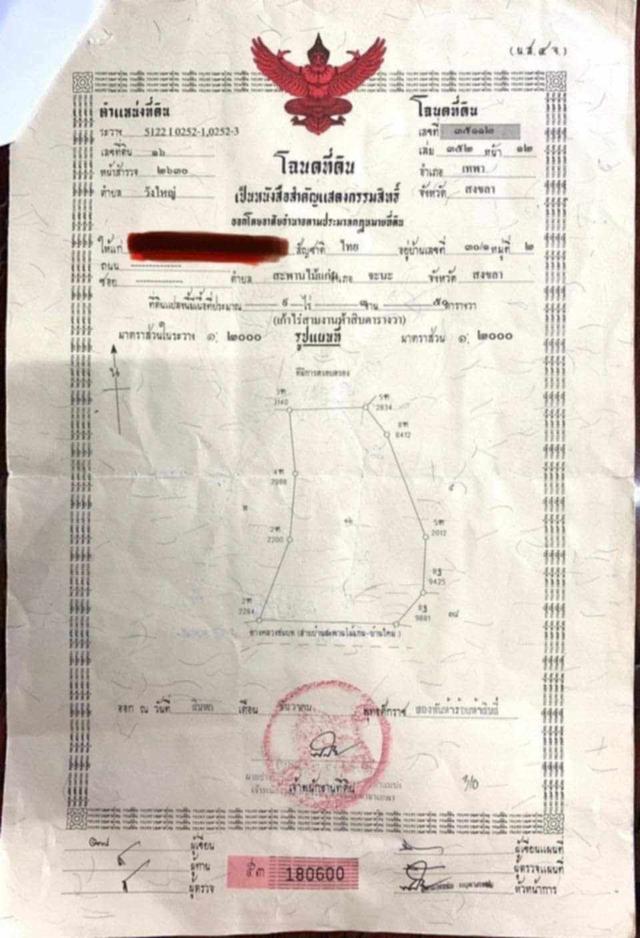 (น.ส.๔ จ.)
ตำแหน่งที่ดิน
ระวาง 5122 I 0252-1,0252-3
เลขที่ดิน ๑๖
หน้าสำรวจ ๒๖๓๐
ตำบล วังใหญ่
โฉนดที่ดิน
เลขที่ ๓๕๑๑๒
เล่ม ๓๕๒ หน้า ๑๒
อำเภอ เทพา
จังหวัด สงขลา
โฉนดที่ดิน
เป็นหนังสือสำคัญแสดงกรรมสิทธิ์
ออกโดยอาศัยอำนาจตามประมวลกฎหมายที่ดิน
ให้แก่ สัญชาติ ไทย อยู่บ้านเลขที่ ๓๐/๑ หมู่ที่ ๒
ถนน
ซอย ตำบล สะพานไม้แก่น อำเภอ จะนะ จังหวัด สงขลา
ที่ดินแปลงนี้มีเนื้อที่ประมาณ ๙ ไร่ ๓ งาน ๕๐ ตารางวา
(เก้าไร่สามงานห้าสิบตารางวา)
มาตราส่วนในระวาง ๑:๒๐๐๐ รูปแผนที่ มาตราส่วน ๑:๒๐๐๐
ที่มีการครอบครอง
3140
2834
8412
2988
2200
2012
9425
2284
9881
๑๖
ทางหลวงชนบท (สายบ้านสะพานไม้แก่น-บ้านใหม่)
ออก ณ วันที่ เดือน ธันวาคม พุทธศักราช สองพันห้าร้อยห้าสิบสี่
เจ้าพนักงานที่ดิน
ผู้เขียน
ผู้ทาน
ผู้ตรวจ
180600
ผู้เขียนแผนที่
ผู้ตรวจแผนที่
หัวหน้าการ